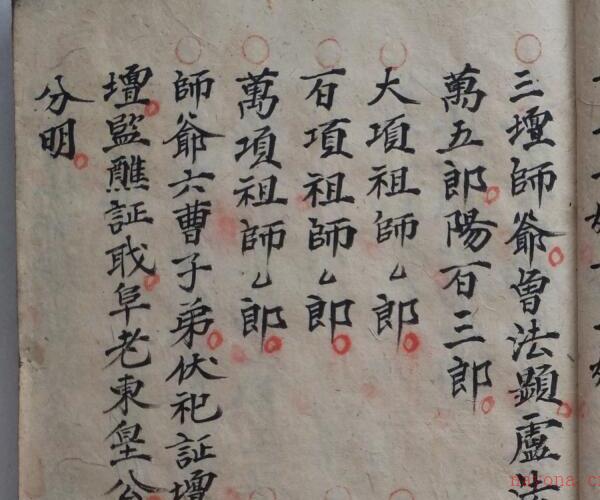 三壇師爺曾法顯盧
萬五郎陽百三郎
大項祖師厶郎
百項祖師厶郎
萬項祖師厶郎
師爺六曹子弟伏祀証壇
壇監醮証戥阜老東皇公
分明